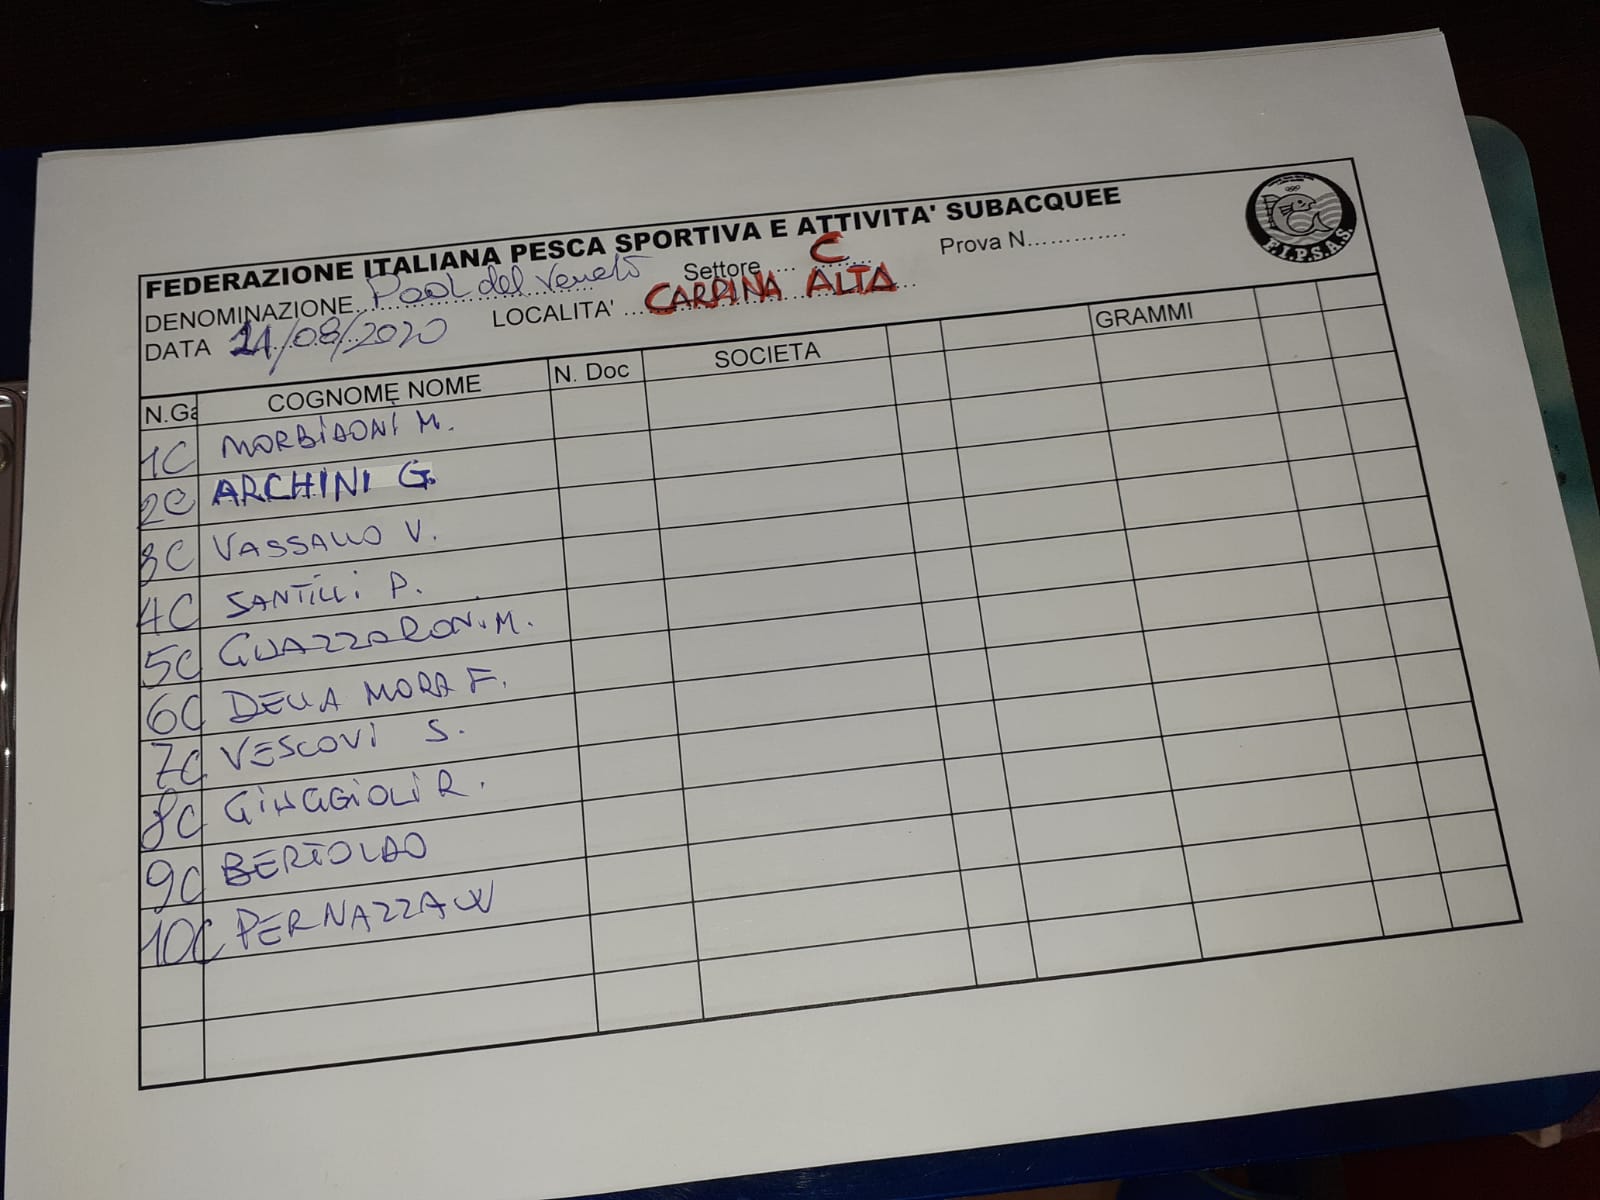 FEDERAZIONE ITALIANA PESCA SPORTIVA E ATTIVITA' SUBACQUEE
DENOMINAZIONE Pool del Veneto Settore C Prova N.............
DATA 21/08/2020 LOCALITA' CARPINA ALTA
F.I.P.S.A.S.
N.Ga COGNOME NOME N. Doc SOCIETA GRAMMI
1C MORBIDONI M.
2C ARCHINI G.
3C VASSALLO V.
4C SANTILLI P.
5C GUAZZARONI M.
6C DELLA MORA F.
7C VESCOVI S.
8C GINAGIOLI R.
9C BERTOLAO
10C PERNAZZA W